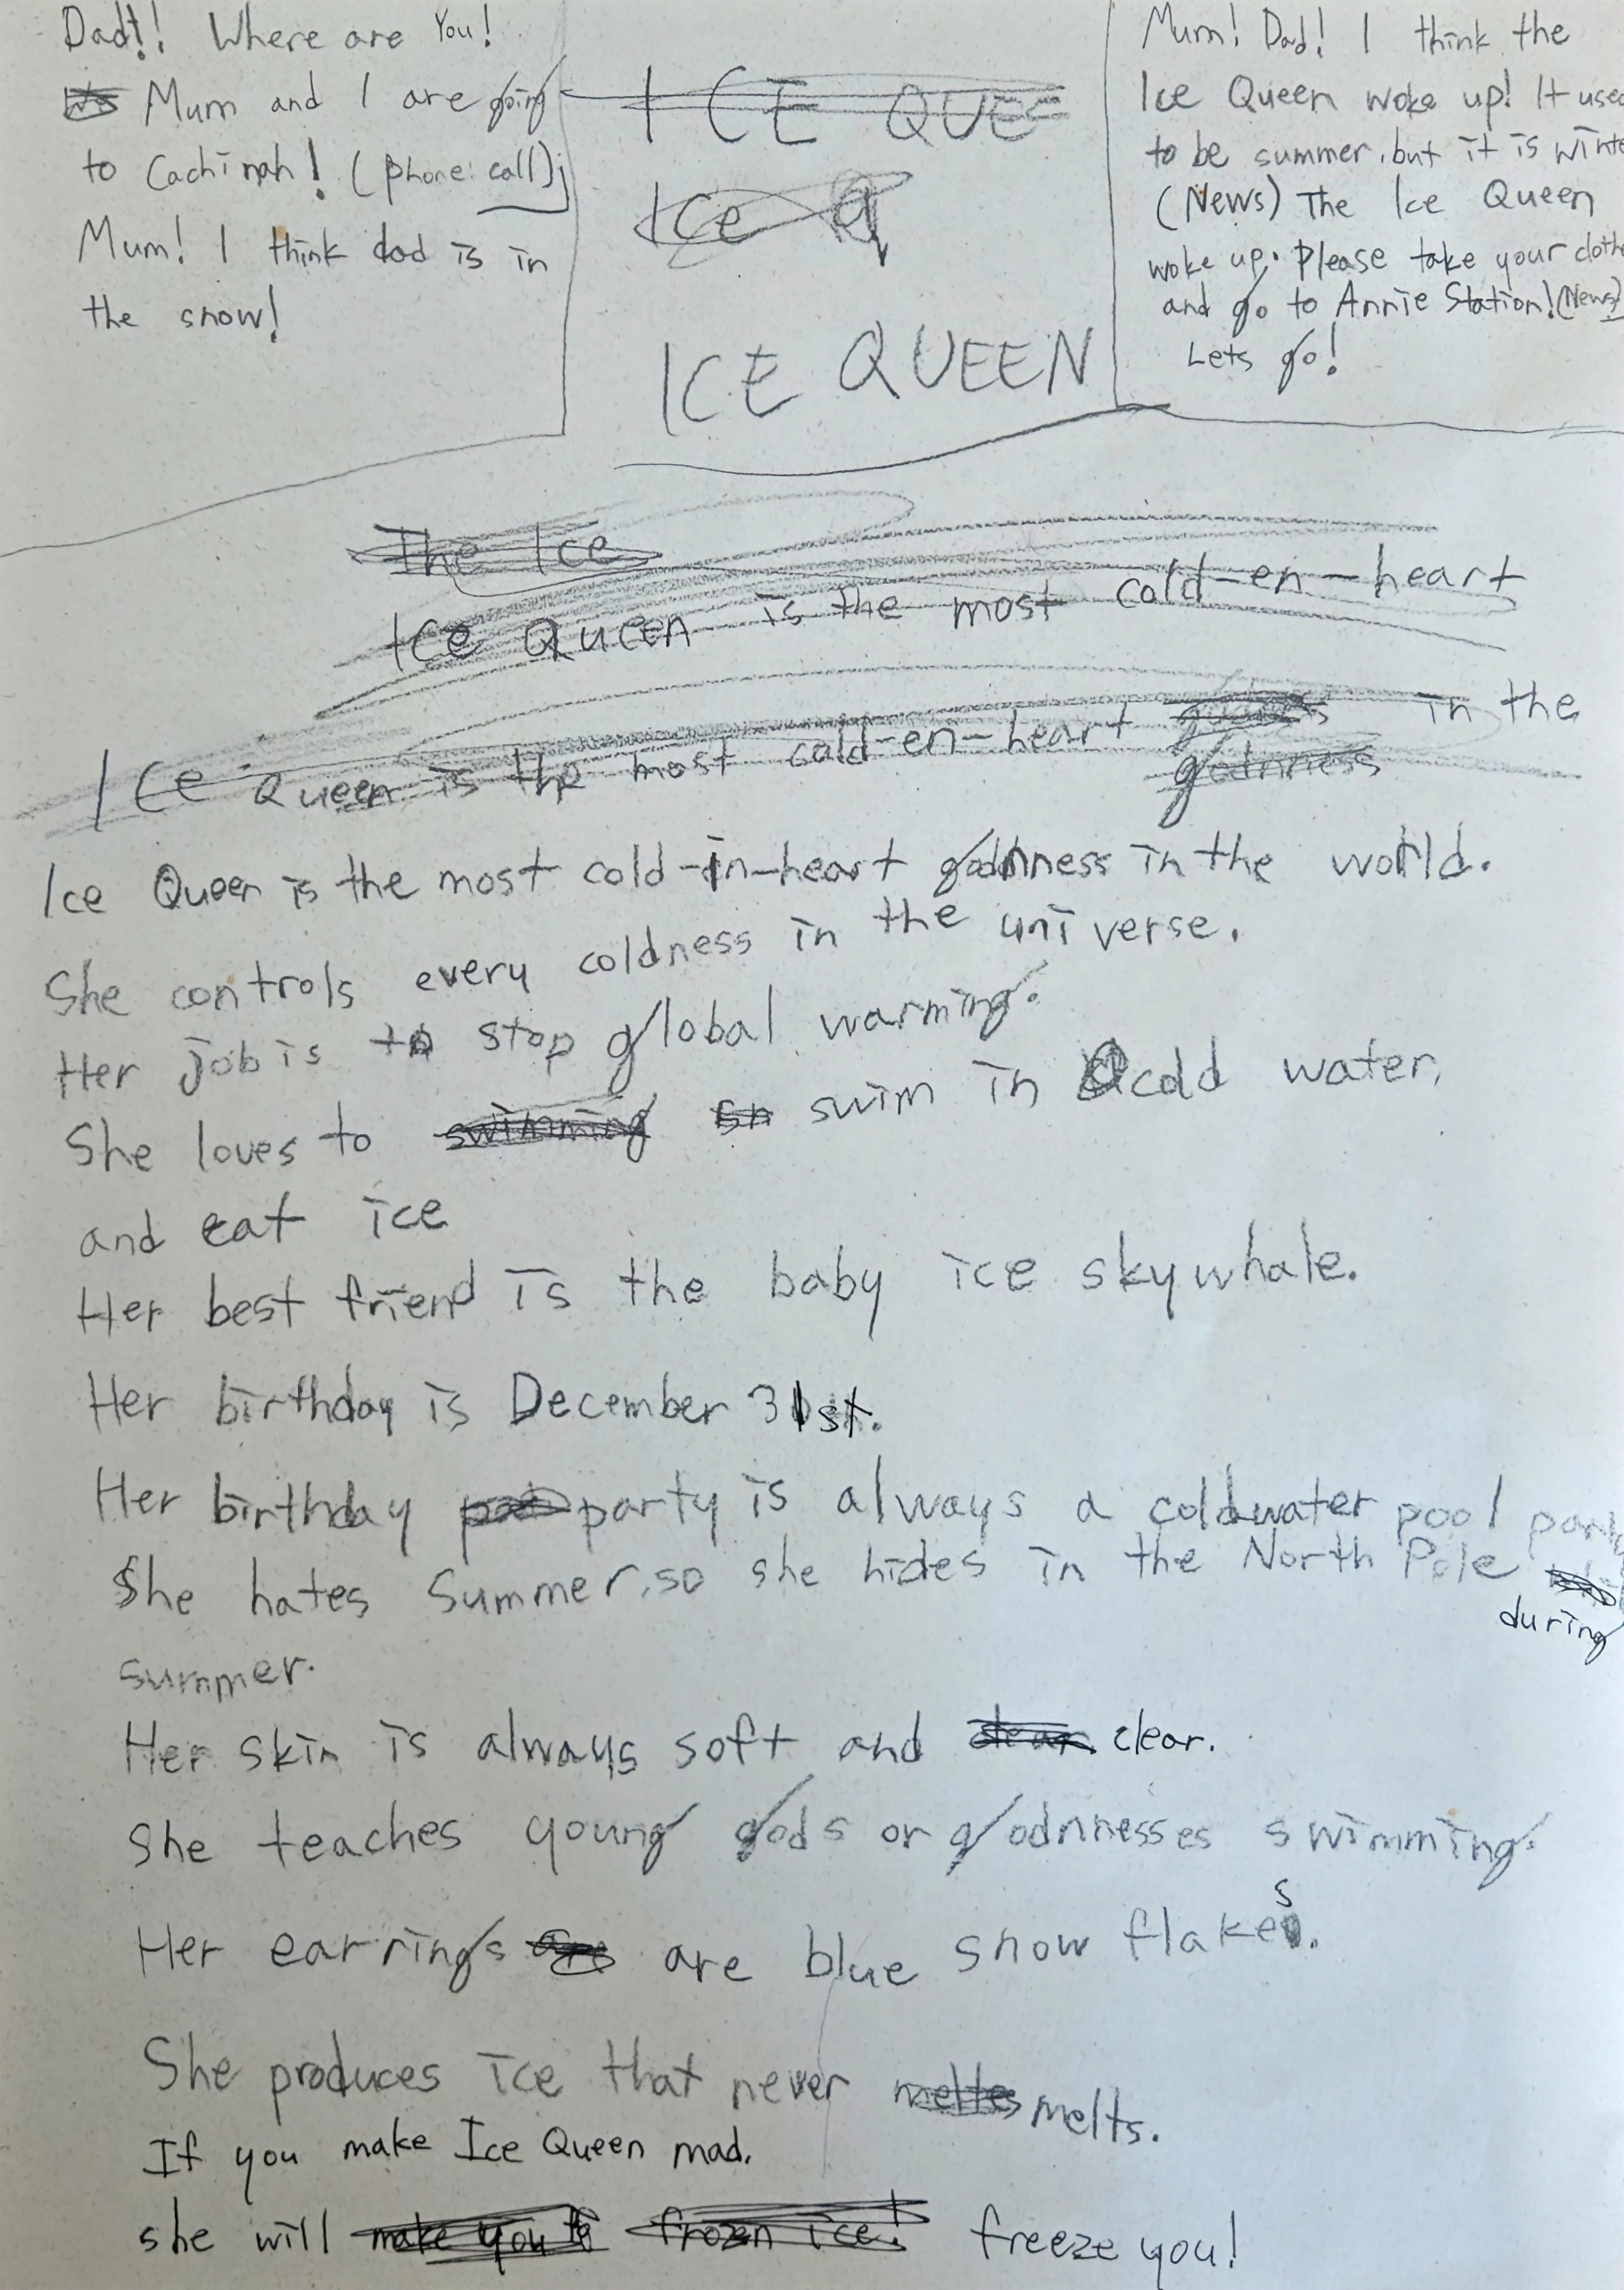 Dad!! Where are You!
Mum and I are going
to Cachinah! (phone: call)
Mum! I think dad is in
the snow!
I CE QUE
Ice Q
ICE QUEEN
Mum! Dad! I think the
Ice Queen woke up! It used
to be summer, but it is winte
(News) The Ice Queen
woke up. Please take your cloth
and go to Annie Station! (News)
Lets go!
The Ice
ICe Queen is the most cold-en-heart
ICe Queen is the most cold-en-heart in the
godnness
Ice Queen is the most cold-in-heart godnness in the world.
She controls every coldness in the universe.
Her job is to stop global warming.
She loves to swimming swim in cold water,
and eat ice
Her best friend is the baby ice skywhale.
Her birthday is December 31st.
Her birthday party is always a coldwater pool party
She hates Summer, so she hides in the North Pole
during
summer.
Her skin is always soft and clear.
She teaches young gods or godnnesses swimming.
Her earrings are are blue snow flakes.
She produces ice that never meltes melts.
If you make Ice Queen mad,
she will make you frozen ice! freeze you!